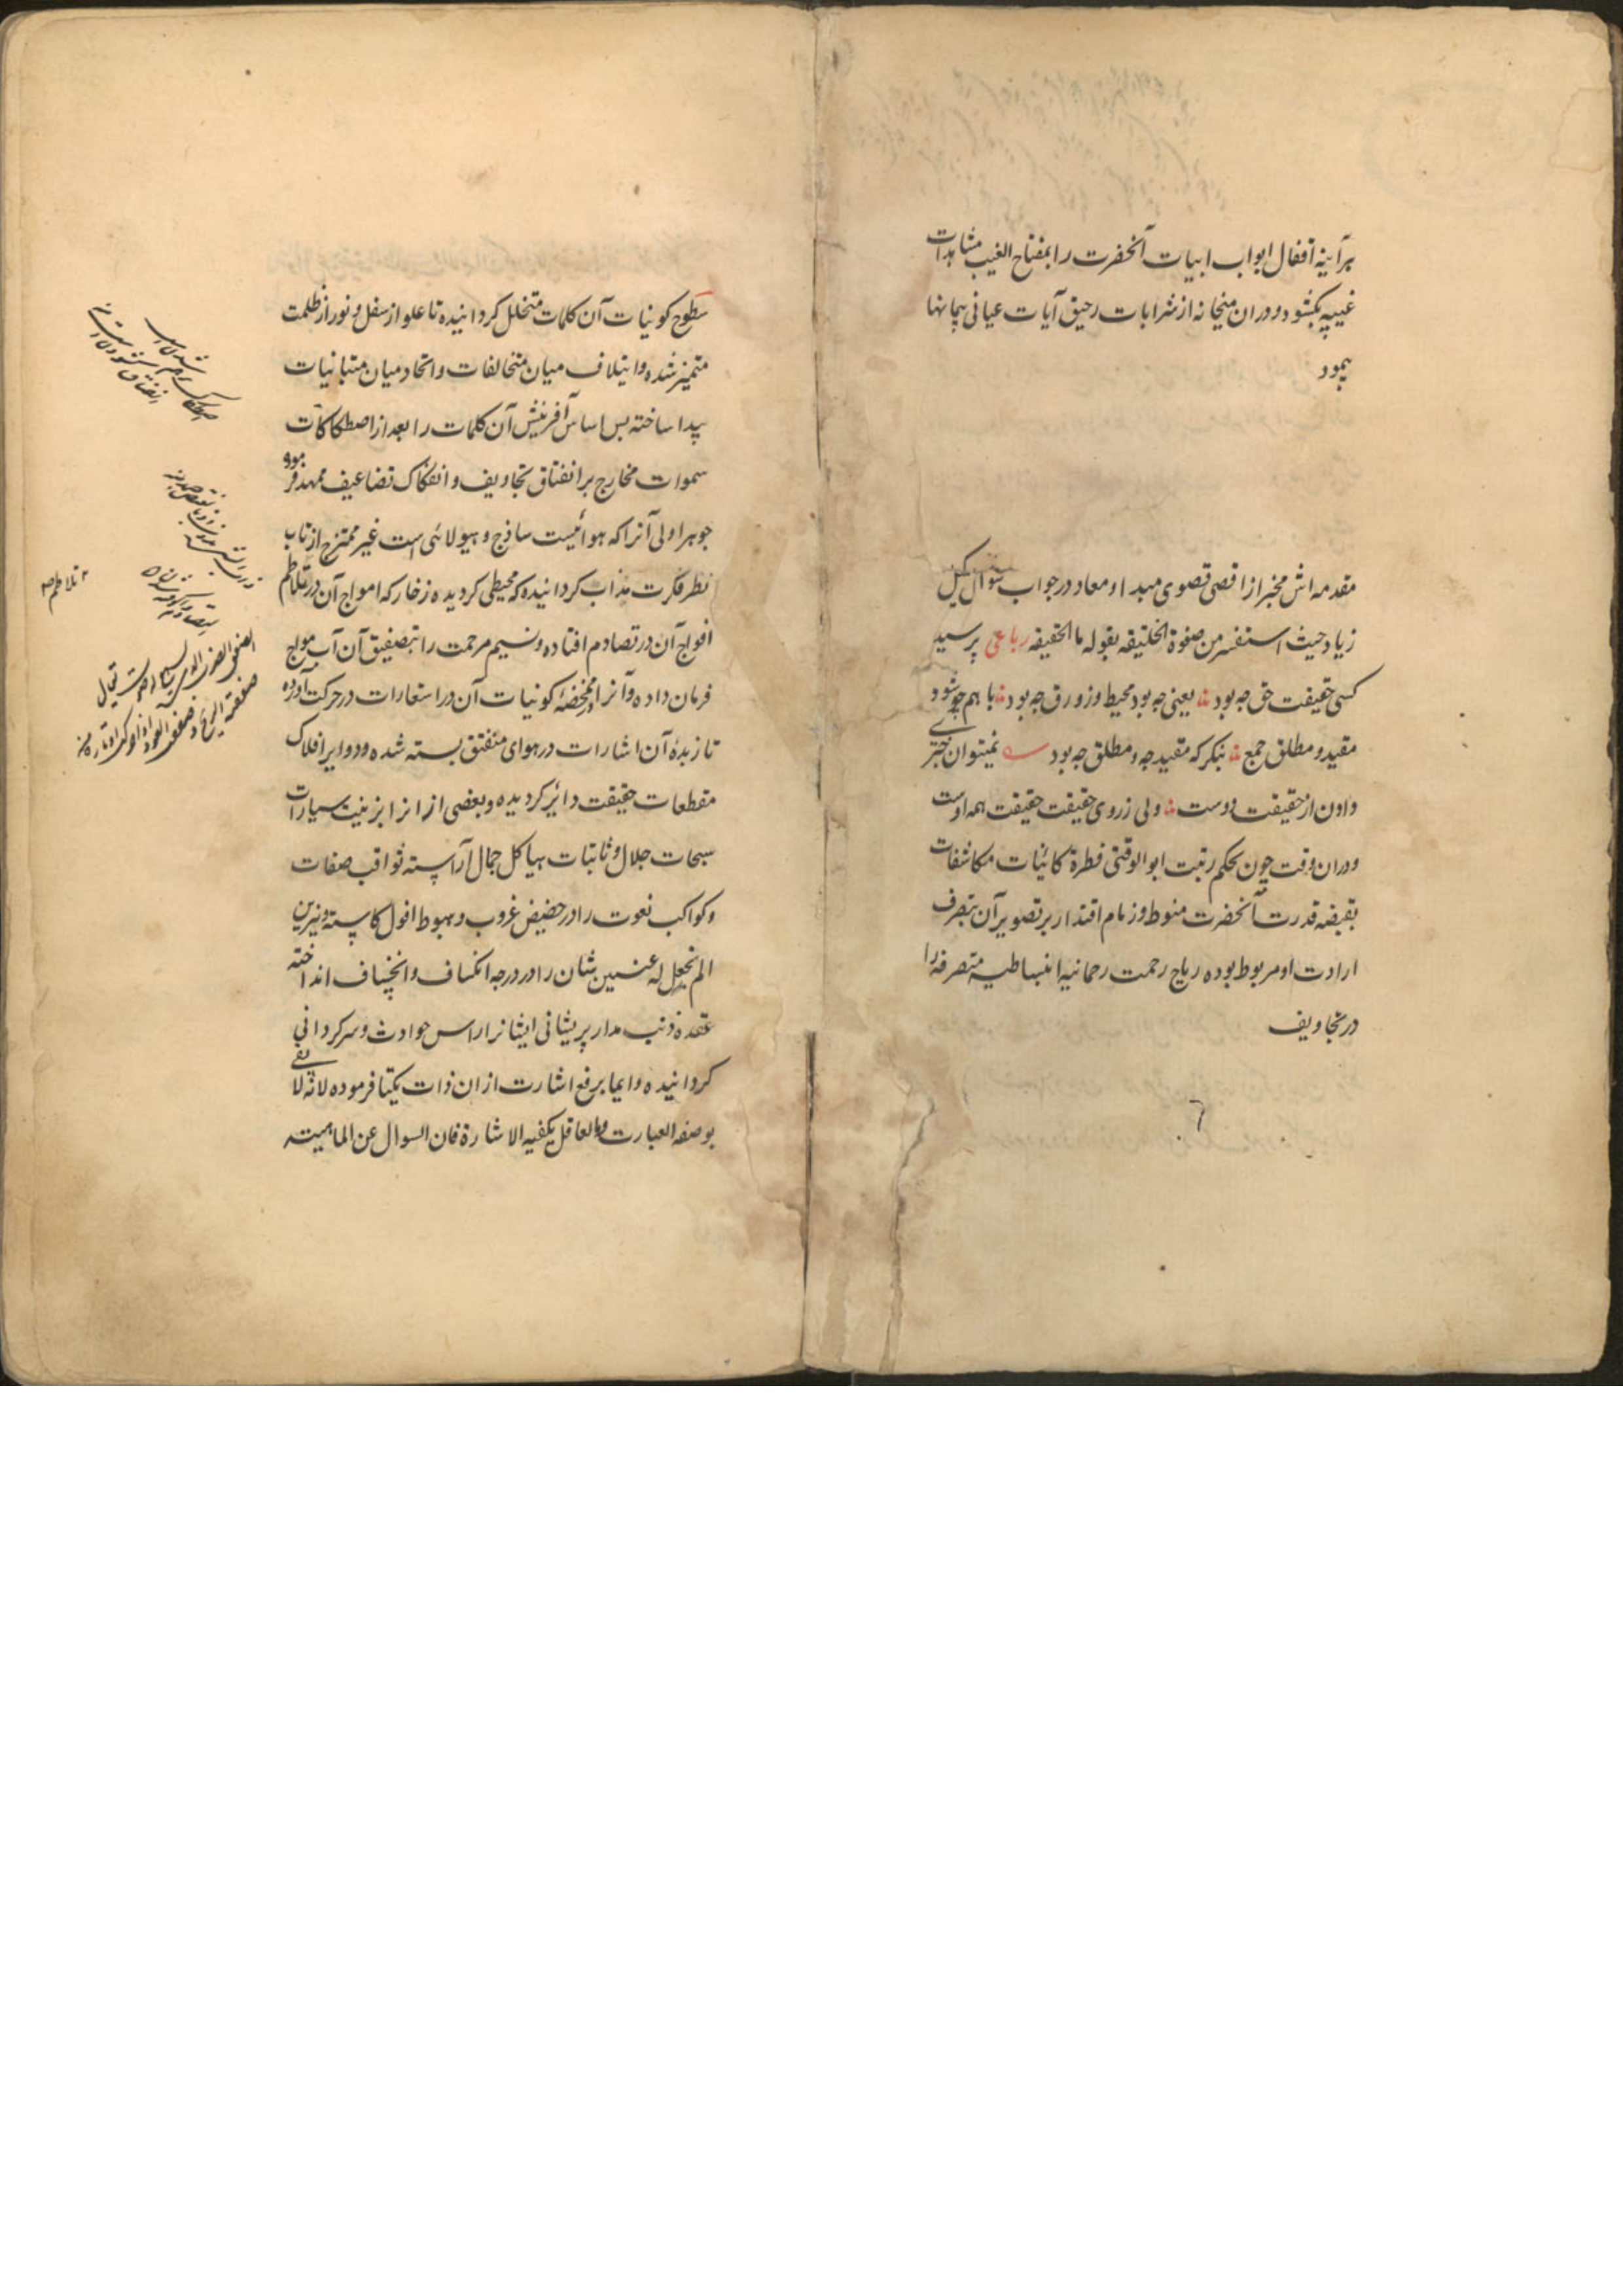 برآینه اقفال ابواب ابیات آنحضرت را بمفتاح الغیب مشاهدات
غیبیه بکشود و در ان میخانه از شرابات رحیق آیات عیانی پیمانها
پیمود
مقدمه اش مخبر از اقصی قصوی مبدا و معاد در جواب سوال کمیل
زیاد حیث استفسر من صفوة الخلیقه بقوله ما الحقیقه رباعی پرسید
کسی حقیقت حق چه بود یعنی چه بود محیط و زورق چه بود با هم چو شود
مقید و مطلق جمع بنگر که مقید چه و مطلق چه بود نمیتوان خبری
دادن از حقیقت دوست ولی ز روی حقیقت حقیقت همه اوست
و دران وقت چون بحکم رتبت ابو الوقتی فطرة کائنات مکاشفات
بقبضه قدرت آنحضرت منوط و زمام اقتدار بر تصویر آن بتصرف
ارادت او مربوط بوده ریاح رحمت رحمانیه انبساطیه متصرفه را
در تجاویف
سطوح کونیات آن کلمات متخلل کردانیده تا علو از سفل و نور از ظلمت
متمیز شده و ایتلاف میان متخالفات و اتحاد میان متبانیات
پیدا ساخته پس اساس آفرینش آن کلمات را بعد از اصطکاکات
سموات مخارج بر انفتاق تجاویف و انفکاک تضاعیف ممهد فرموده
جوهر اولی آنرا که هوائیست ساذج و هیولائی است غیر ممتزج از تاب
نظر فکرت مذاب کردانیده که محیطی کردیده زخار که امواج آن در تلاطم
افواج آن در تصادم افتاده و نسیم مرحمت را بتصفیق آن آب مواج
فرمان داده و آنرا در ممخضه کونیات آن در استعارات در حرکت آورده
تا زبدهٔ آن اشارات در هوای منفتق بسته شده و دوایر افلاک
مقطعات حقیقت دائر کردیده و بعضی از انرا بزینت سیارات
سبحات جلال و ثابتات هیاکل جمال آراسته ثواقب صفات
و کواکب نعوت را در حضیض غروب و هبوط افول کاسته و نیرین
الم نجعل له عینین شان را در درجه انکساف و انخساف انداخته
عقده ذنب مدار پریشانی ایشانرا راس حوادث و سرکردانی
کردانیده و ایما برفع اشارت از ان ذات یکتا فرموده لانه لا یفی
بوصفه العبارت و العاقل یکفیه الاشارة فان السوال عن الماهیته
تلاطم صح